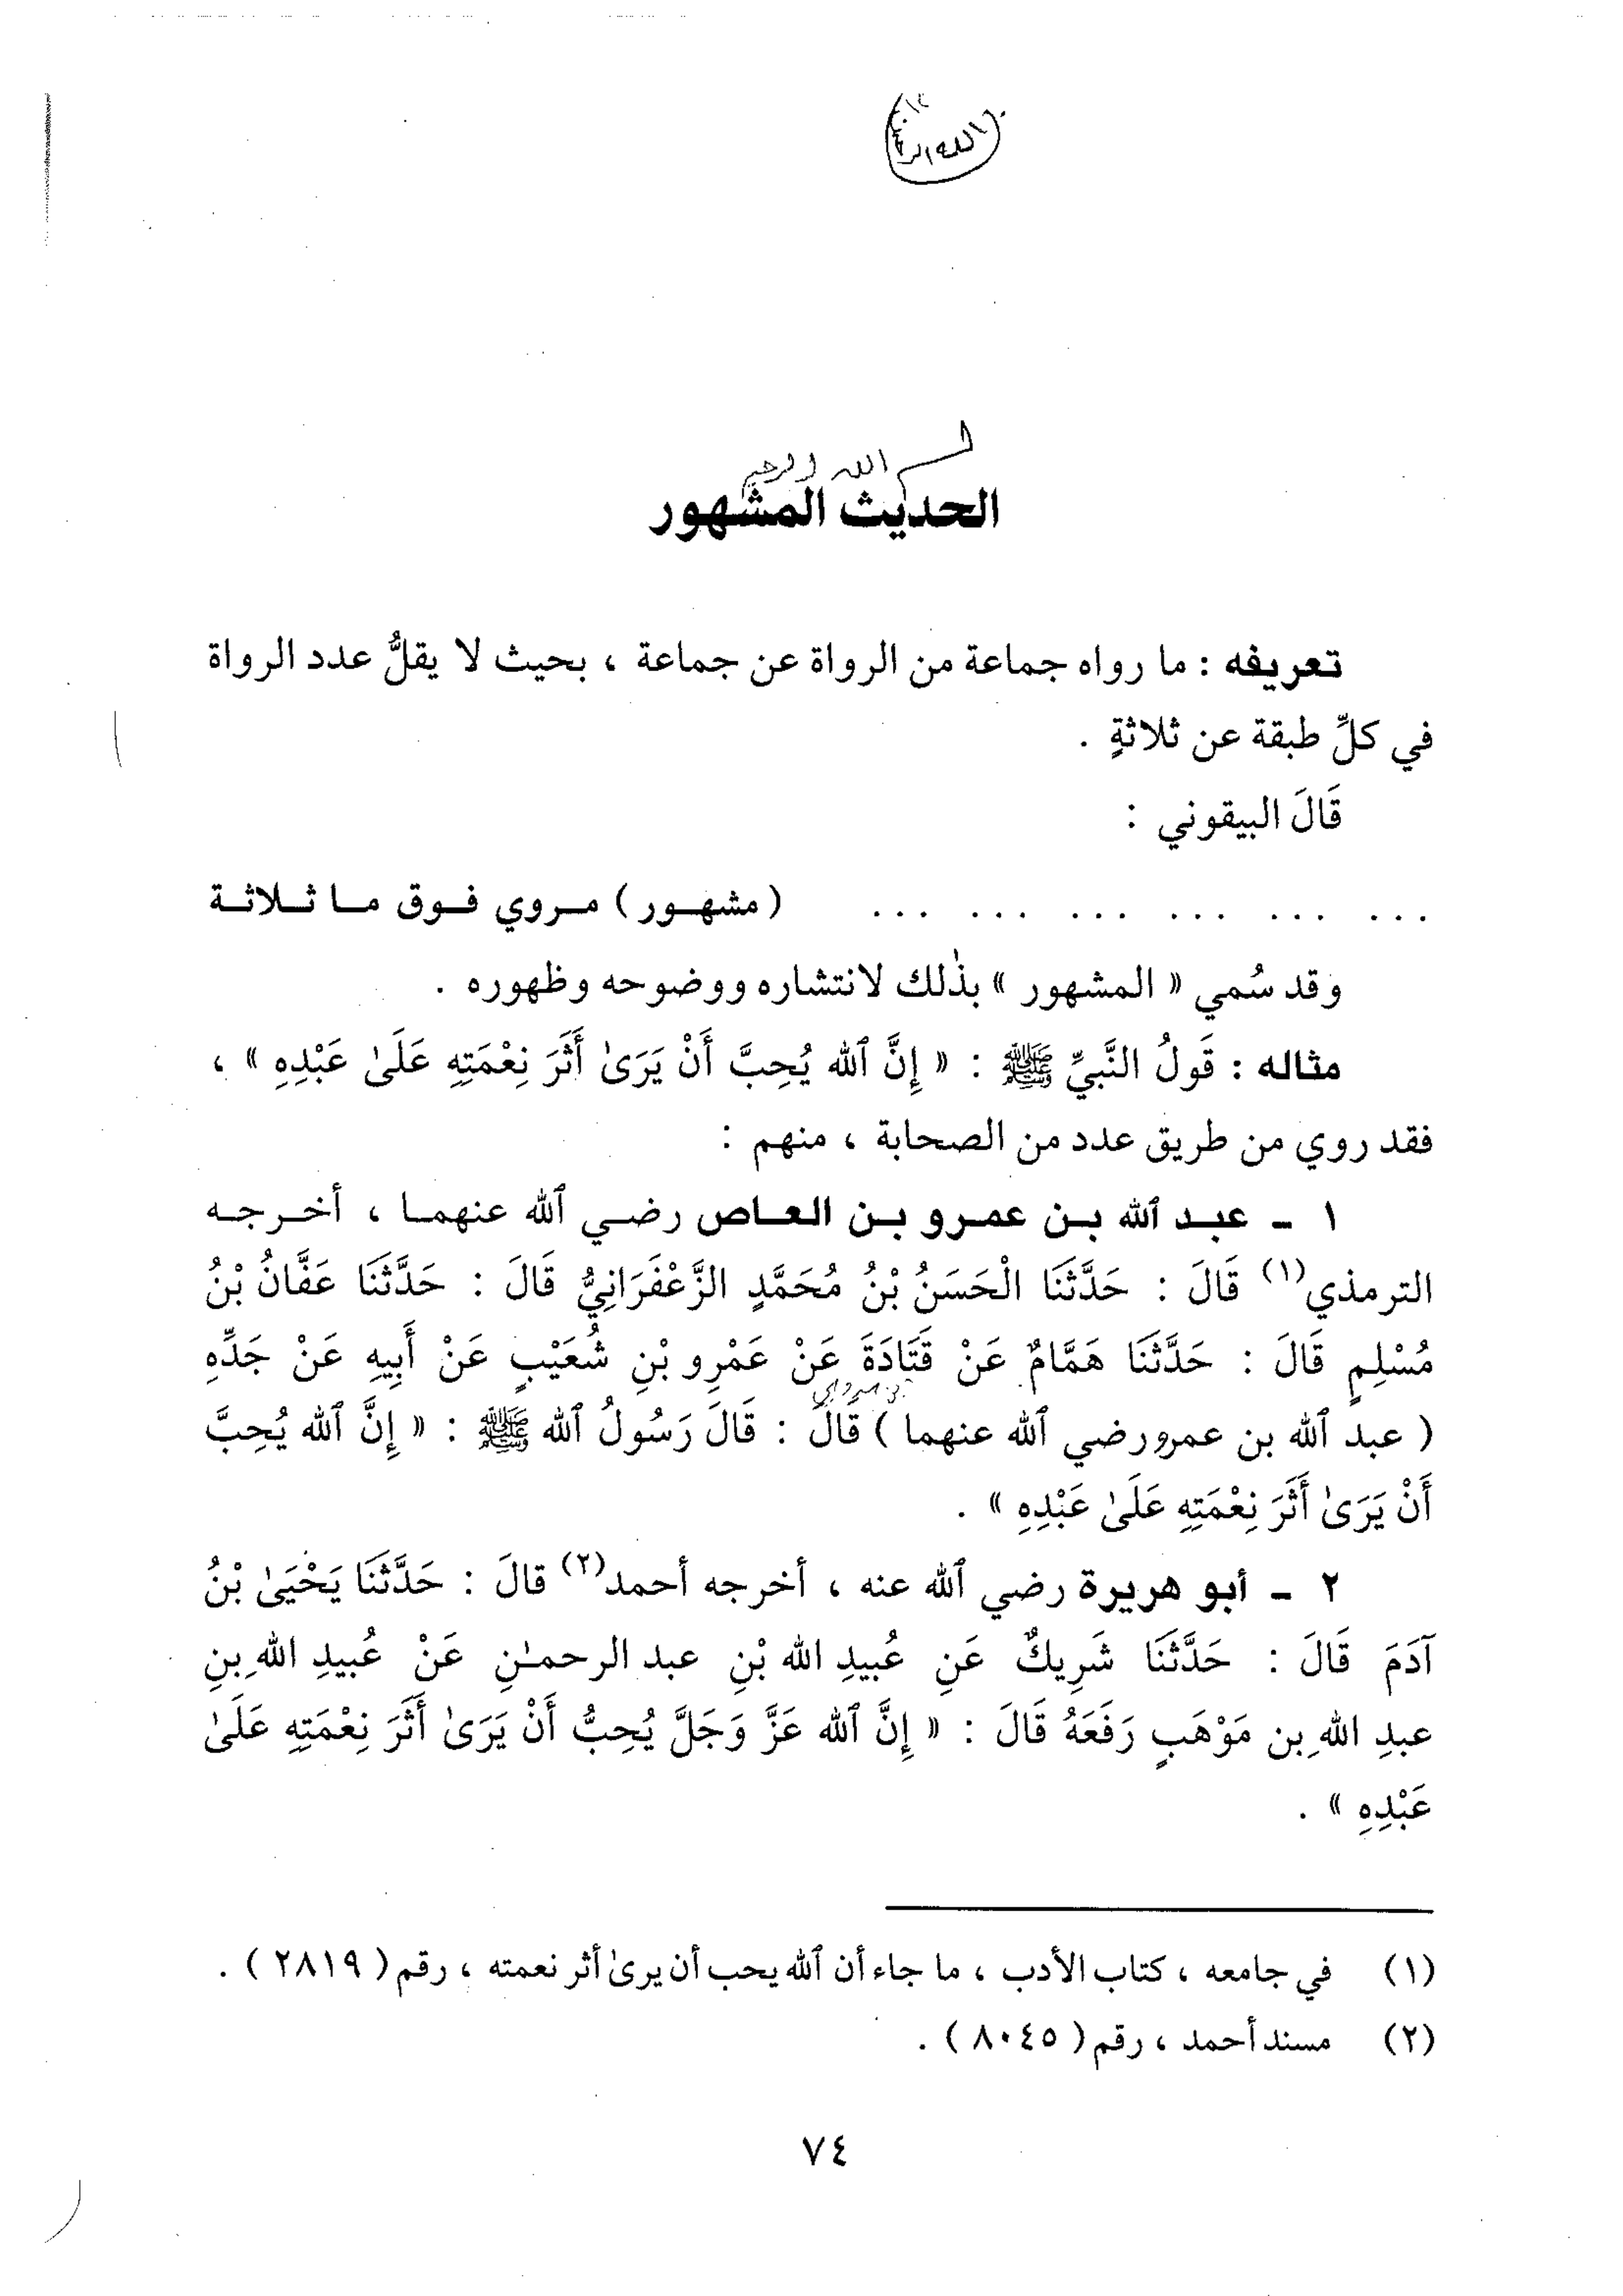 الحديث المشهور
تعريفه : ما رواه جماعة من الرواة عن جماعة ، بحيث لا يقلُّ عدد الرواة
في كلِّ طبقة عن ثلاثةٍ .
قَالَ البيقوني :
... ... ... ... ... ... ( مشهـور ) مـروي فـوق مـا ثـلاثـة
وقد سُمي « المشهور » بذٰلك لانتشاره ووضوحه وظهوره .
مثاله : قَولُ النَّبيِّ ﷺ : « إِنَّ ٱلله يُحِبَّ أَنْ يَرَىٰ أَثَرَ نِعْمَتِهِ عَلَىٰ عَبْدِهِ » ،
فقد روي من طريق عدد من الصحابة ، منهم :
١ - عبـد ٱلله بـن عمـرو بـن العـاص رضـي ٱلله عنهمـا ، أخـرجـه
الترمذي(١) قَالَ : حَدَّثَنَا الْحَسَنُ بْنُ مُحَمَّدٍ الزَّعْفَرَانِيُّ قَالَ : حَدَّثَنَا عَفَّانُ بْنُ
مُسْلِمٍ قَالَ : حَدَّثَنَا هَمَّامٌ عَنْ قَتَادَةَ عَنْ عَمْرِو بْنِ شُعَيْبٍ عَنْ أَبِيهِ عَنْ جَدِّهِ
( عبد ٱلله بن عمرو رضي ٱلله عنهما ) قَالَ : قَالَ رَسُولُ ٱلله ﷺ : « إِنَّ ٱلله يُحِبَّ
أَنْ يَرَىٰ أَثَرَ نِعْمَتِهِ عَلَىٰ عَبْدِهِ » .
٢ - أبو هريرة رضي ٱلله عنه ، أخرجه أحمد(٢) قالَ : حَدَّثَنَا يَحْيَىٰ بْنُ
آدَمَ قَالَ : حَدَّثَنَا شَرِيكٌ عَنِ عُبيدِ الله بْنِ عبد الرحمـٰنِ عَنْ عُبيدِ اللهِ بنِ
عبدِ اللهِ بن مَوْهَبٍ رَفَعَهُ قَالَ : « إِنَّ ٱلله عَزَّ وَجَلَّ يُحِبُّ أَنْ يَرَىٰ أَثَرَ نِعْمَتِهِ عَلَىٰ
عَبْدِهِ » .
(١) في جامعه ، كتاب الأدب ، ما جاء أن ٱلله يحب أن يرىٰ أثر نعمته ، رقم ( ٢٨١٩ ) .
(٢) مسند أحمد ، رقم ( ٨٠٤٥ ) .
٧٤